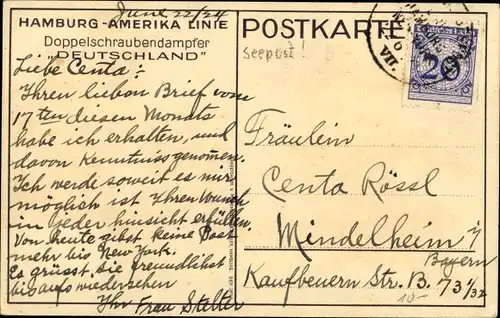 June 22/24
HAMBURG-AMERIKA LINIE
Doppelschraubendampfer
„DEUTSCHLAND"
Liebe Centa:
Ihren lieben Brief vom
17ten diesen Monats
habe ich erhalten, und
davon Kenntniss genommen.
Ich werde soweit es mir
möglich ist Ihren Wunsch
in jeder hinsicht erfüllen.
Von heute gibst keine Post
mehr bis New York.
Es grüsst Sie freundlichst
bis aufs wiedersehen
Ihr Frau Stelter
POSTKARTE
Seepost!
VII.
20
Fräulein
Centa Rössl
Mindelheim i/
Bayern
Kaufbeuern Str. B. 73 1/32
10-